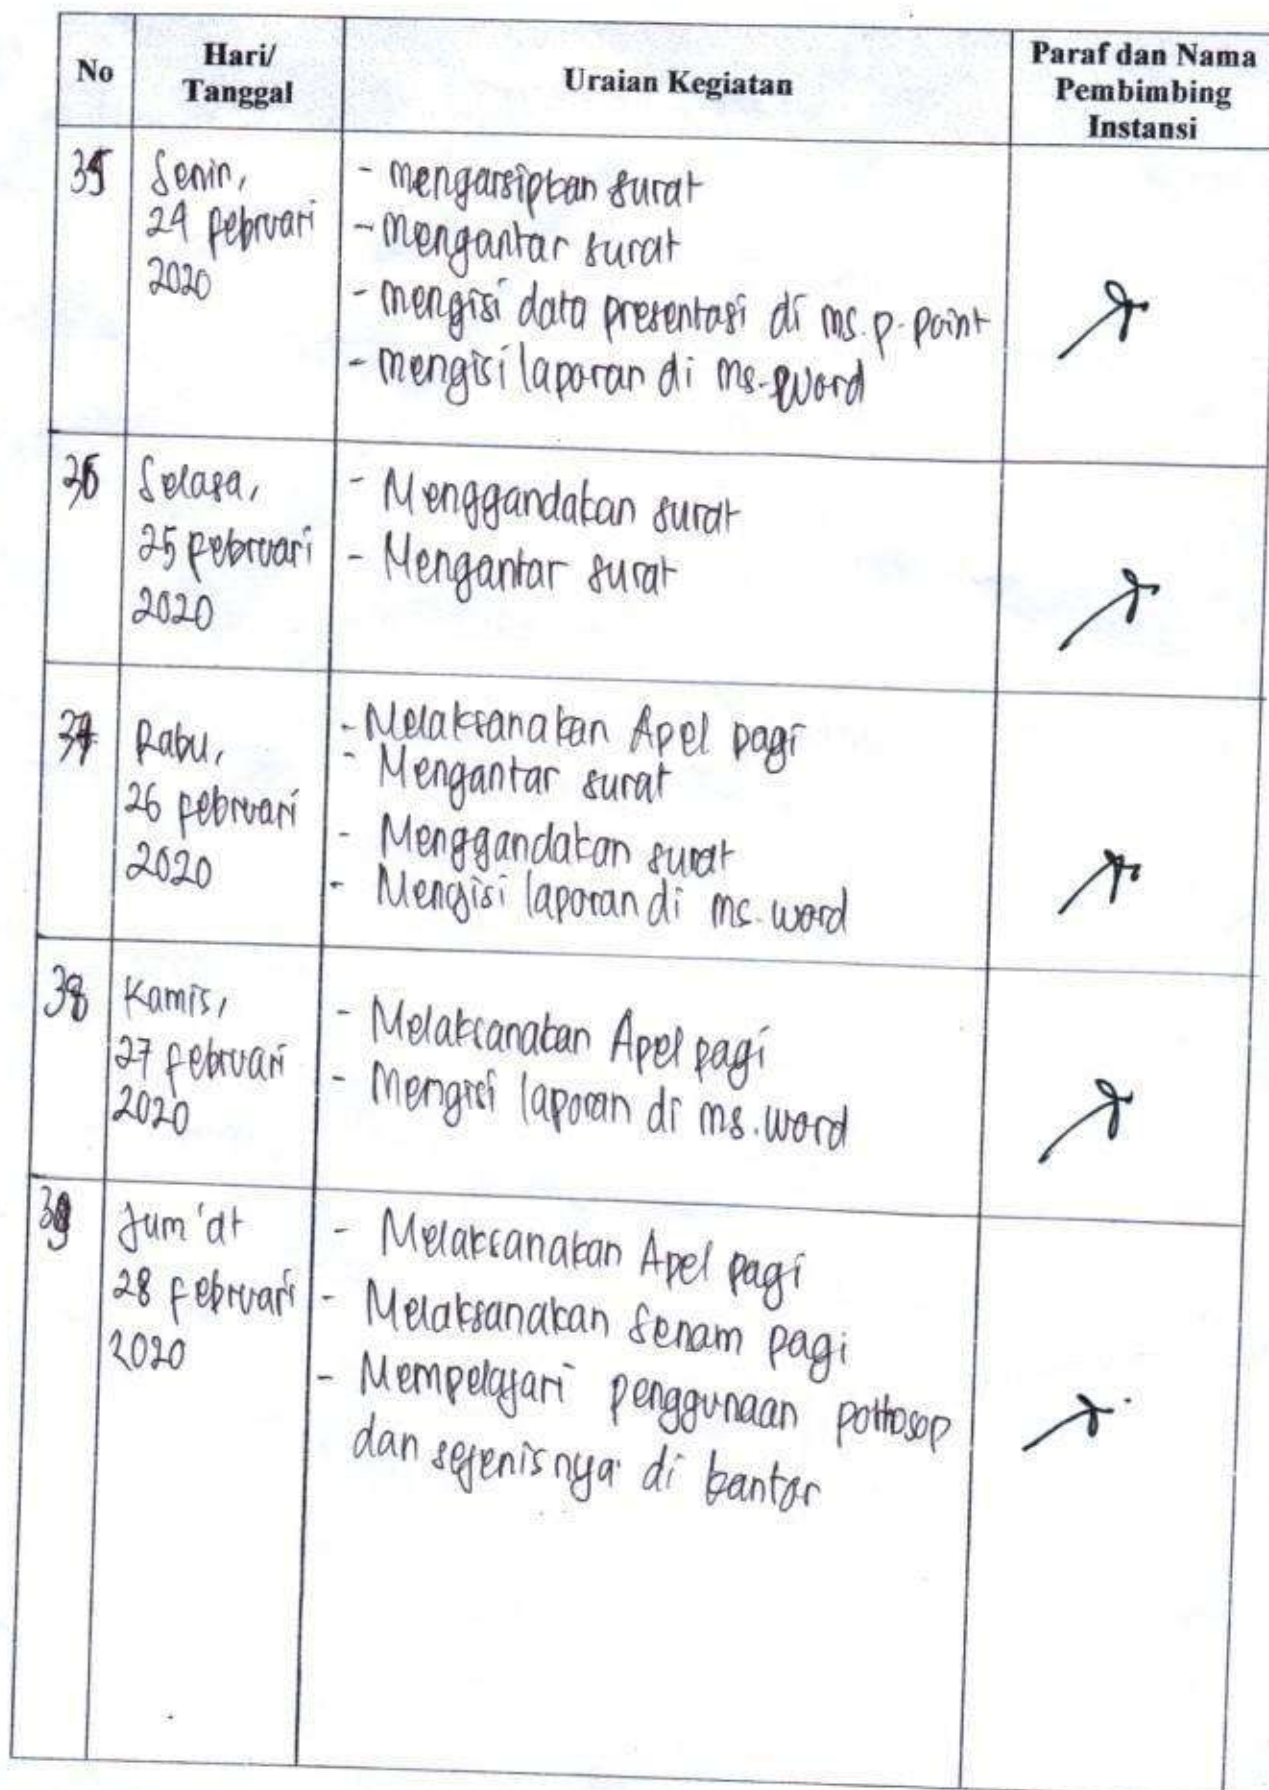 No
Hari/
Tanggal
Uraian Kegiatan
Paraf dan Nama
Pembimbing
Instansi
35
Senin,
24 februari
2020
- mengarsipkan surat
- mengantar surat
- mengisi data presentasi di ms. p. point
- mengisi laporan di ms-word
36
Selasa,
25 februari
2020
- Menggandakan surat
- Mengantar surat
37
Rabu,
26 februari
2020
- Melaksanakan Apel pagi
- Mengantar surat
- Menggandakan surat
- Mengisi laporan di ms. word
38
Kamis,
27 februari
2020
- Melaksanakan Apel pagi
- Mengisi laporan di ms. word
39
Jum'at
28 februari
2020
- Melaksanakan Apel pagi
- Melaksanakan senam pagi
- Mempelajari penggunaan pottosop
dan sejenisnya di kantor